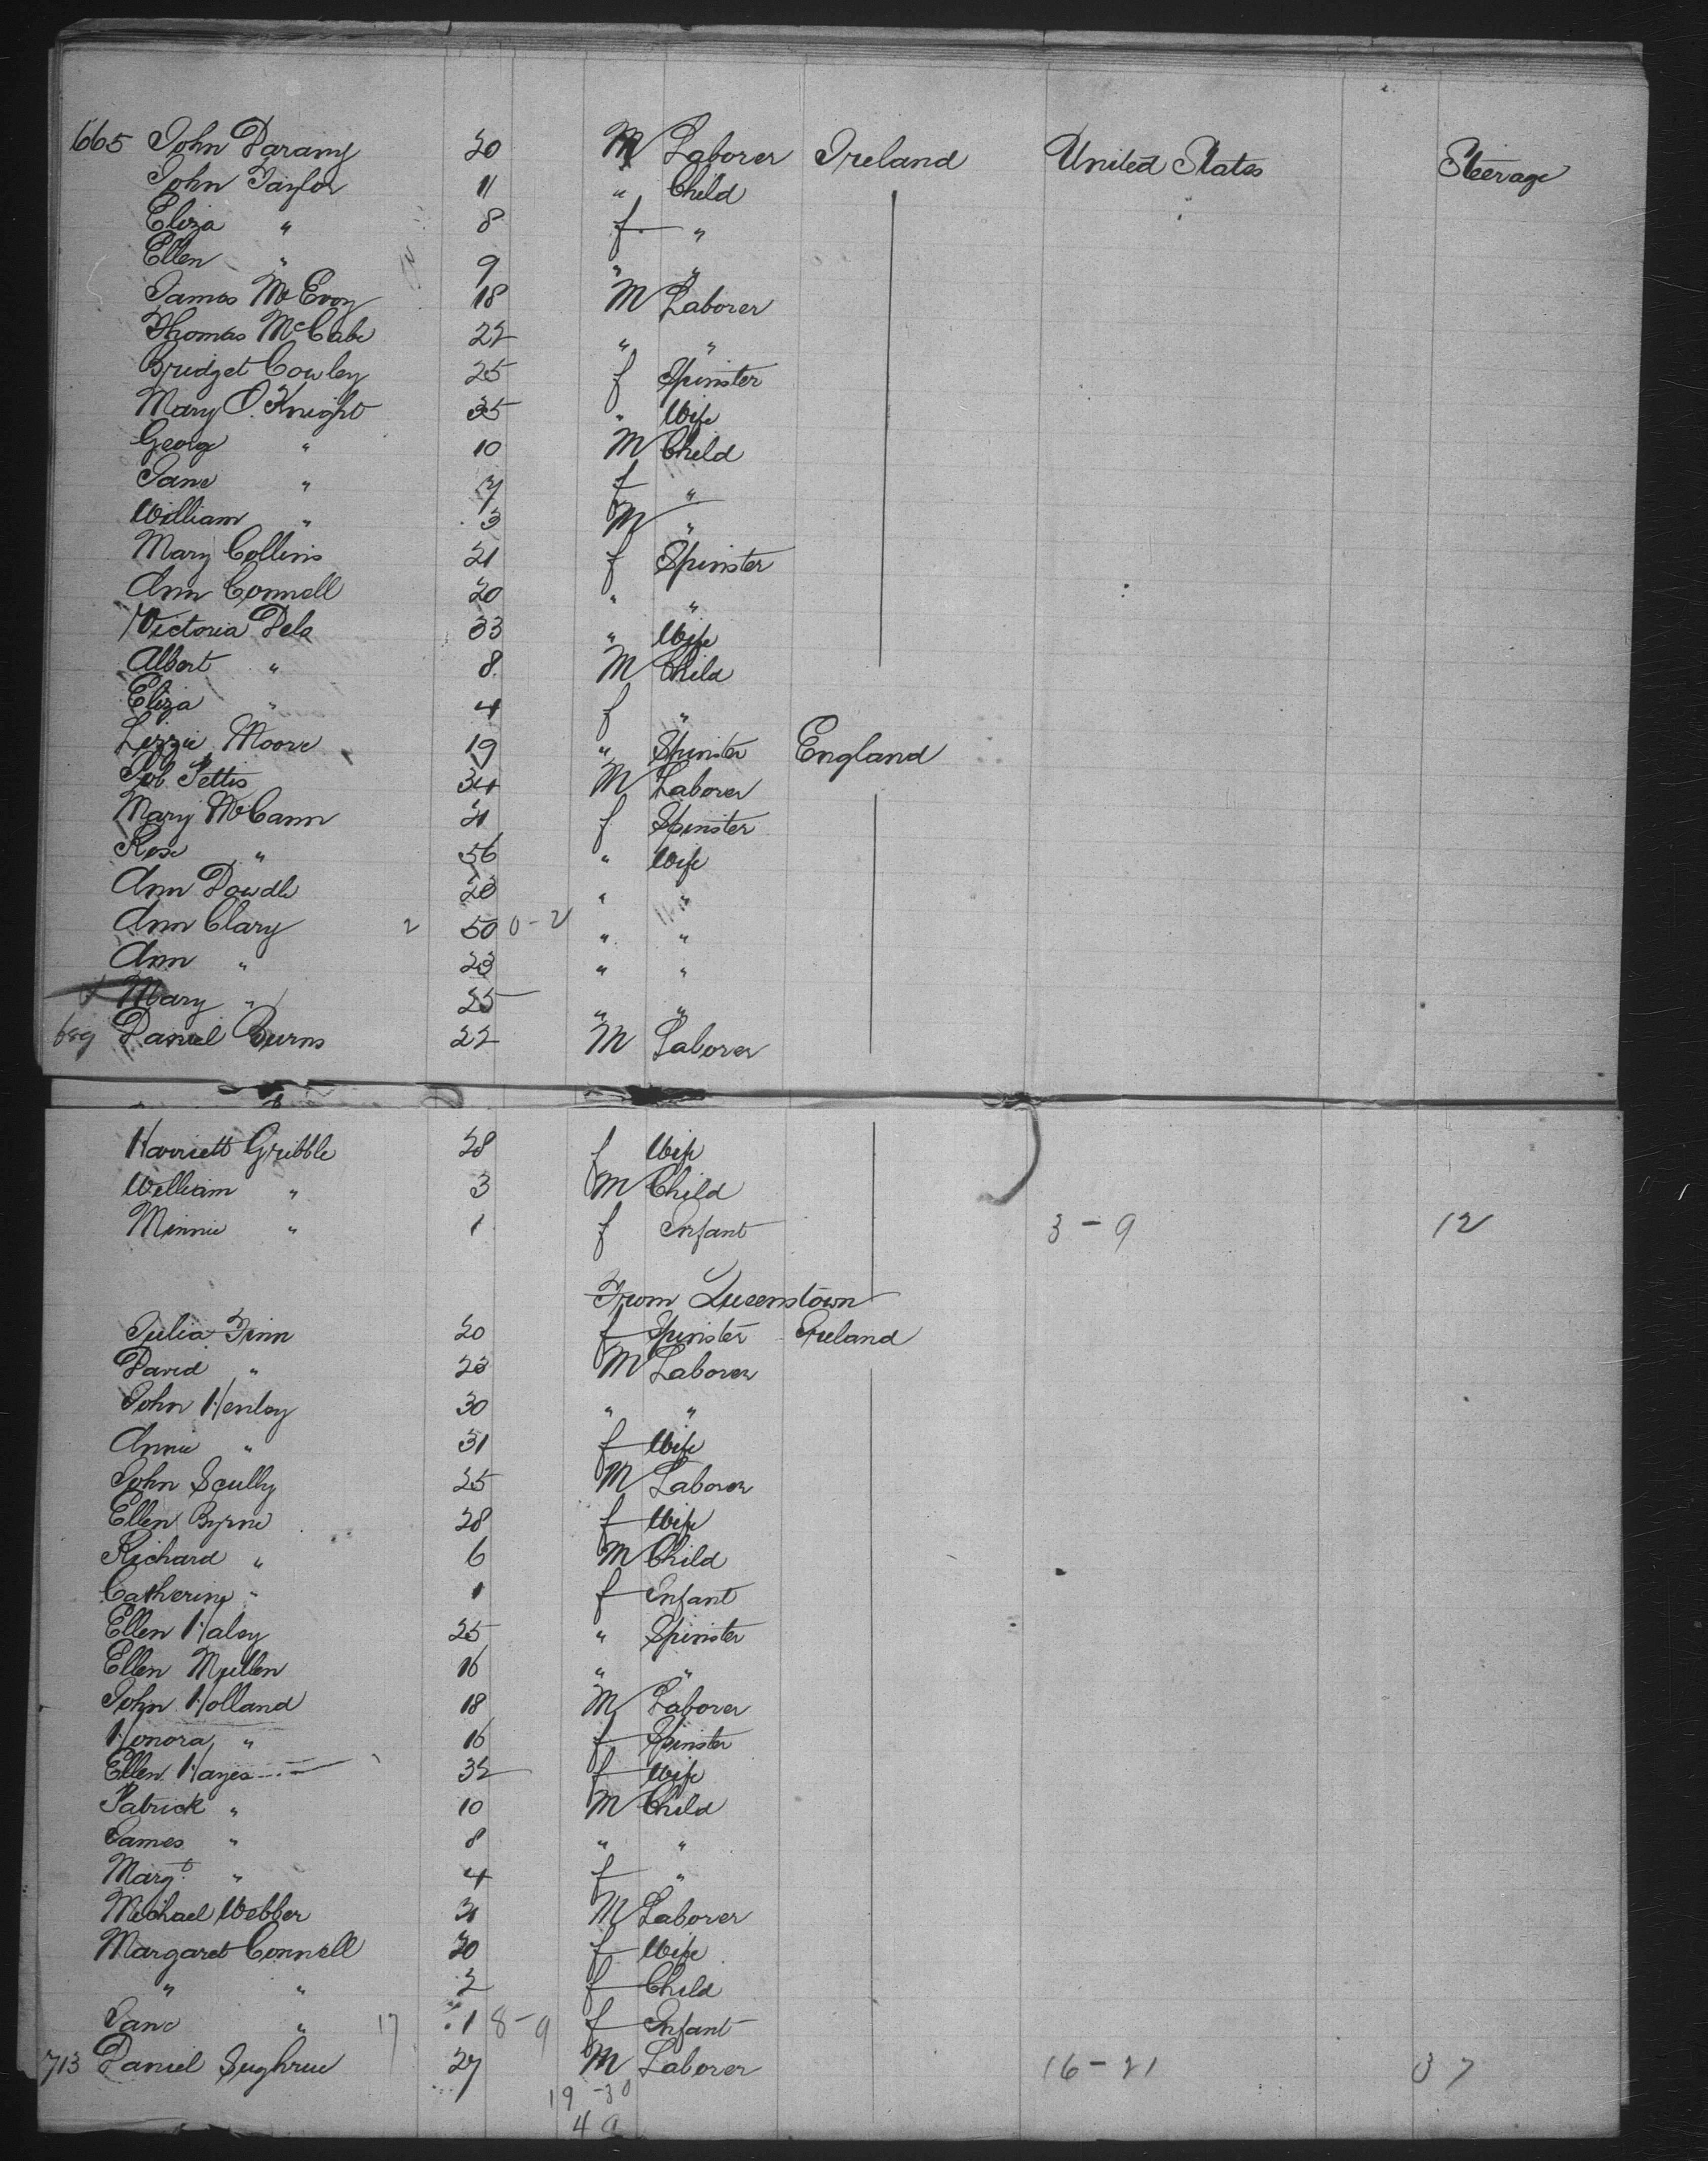 665 John Daramy 20 M Laborer Ireland United States Steerage
John Taylor 11 " Child
Eliza " 8 f "
Ellen " 9 " "
James McEvoy 18 M Laborer
Thomas McCabe 22 " "
Bridget Cowley 25 f Spinster
Mary O. Knight 35 " Wife
Georg " 10 M Child
Jane " 7 f "
William " 3 M "
Mary Collins 21 f Spinster
Ann Connell 20 " "
Victoria Dels 33 " Wife
Albert " 8 M Child
Eliza " 4 f "
Lizzie Moore 19 " Spinster England
Job Pettis 34 M Laborer
Mary McCann 21 f Spinster
Rose " 56 " Wife
Ann Dowdle 23 " "
Ann Clary 2 50 0-2 " "
Ann " 23 " "
Mary " 25 " "
689 Daniel Burns 22 M Laborer
Harriett Gribble 28 f Wife
William " 3 M Child
Minnie " 1 f Infant 3-9 12
From Queenstown
Julia Finn 20 f Spinster Ireland
David " 23 M Laborer
John Henley 30 " "
Annie " 31 f Wife
John Scully 25 M Laborer
Ellen Byrne 28 f Wife
Richard " 6 M Child
Catherine " 1 f Infant
Ellen Haley 25 " Spinster
Ellen Mullen 16 " "
John Holland 18 M Laborer
Honora " 16 f Spinster
Ellen Hayes 32 f Wife
Patrick " 10 M Child
James " 8 " "
Margt " 4 f "
Michael Webber 31 M Laborer
Margaret Connell 30 f Wife
" " 2 f Child
Jane " 17 1 8-9 f Infant
713 Daniel Sughrue 27 M Laborer 16-21 37
19-30
49